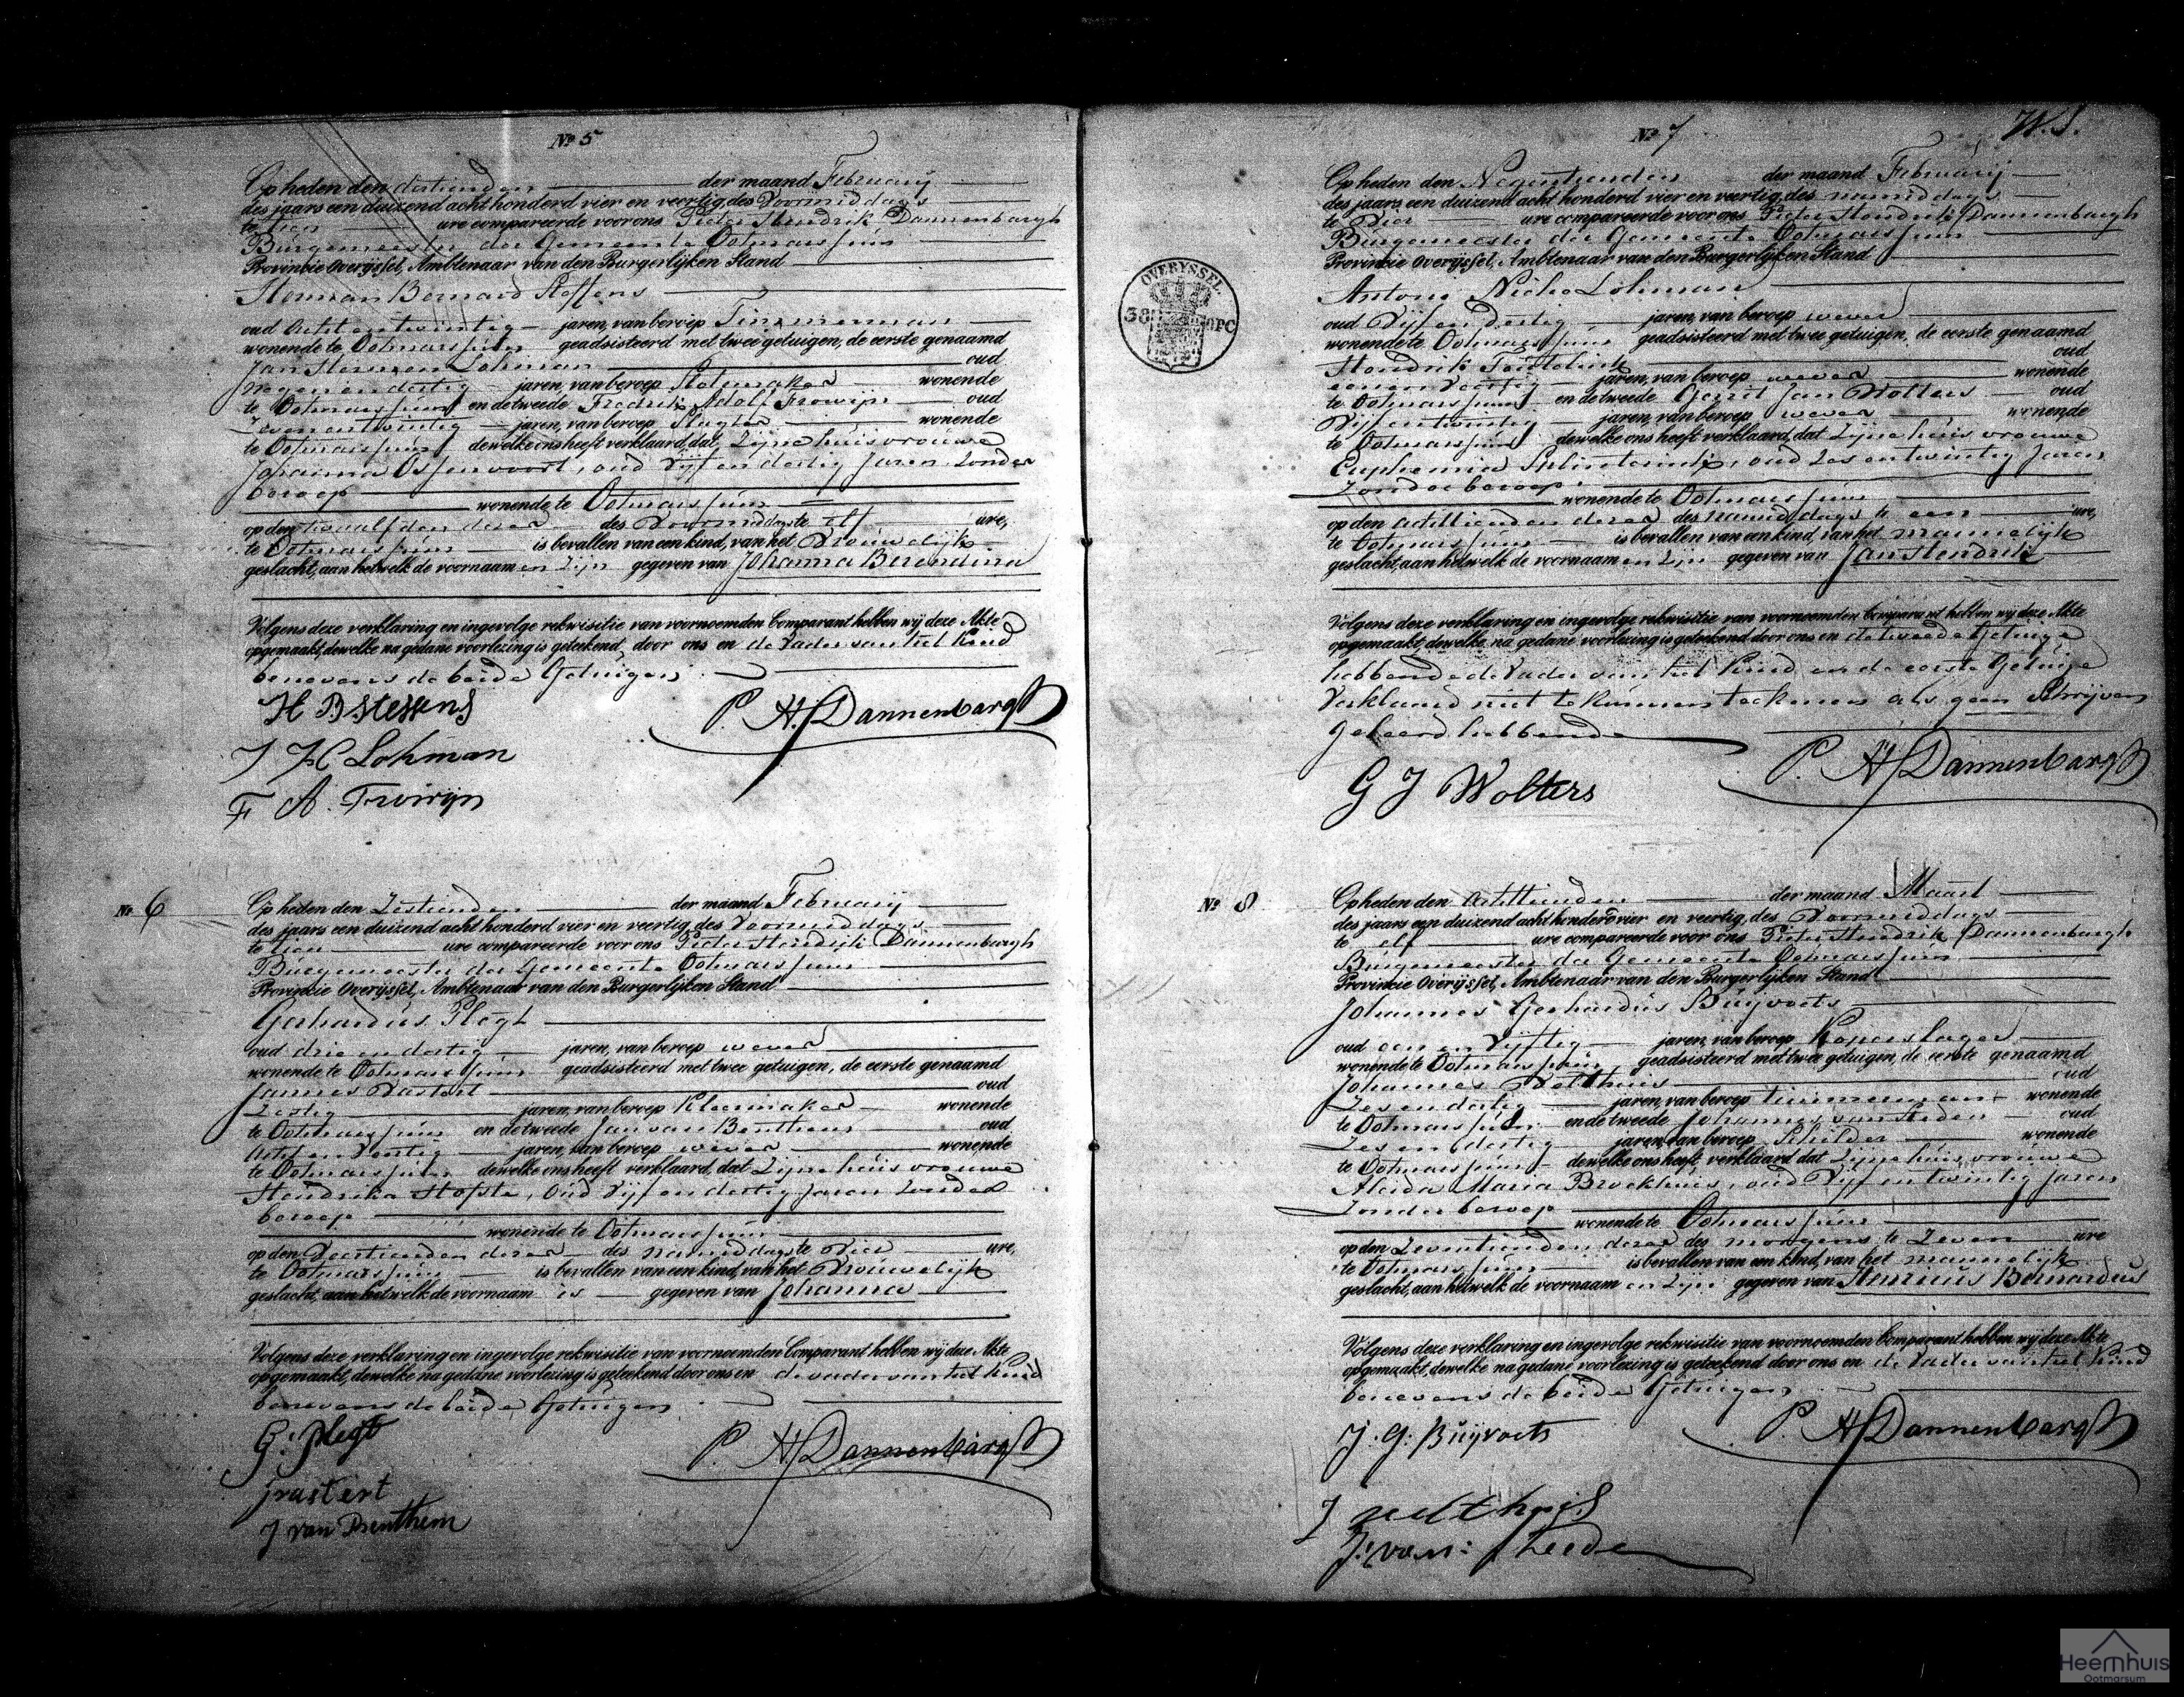 Nº 5
Op heden den dertienden der maand February
des jaars een duizend acht honderd vier en veertig, des Voormiddags
te tien ure compareerde voor ons Pieter Hendrik Dannenbargh
Burgemeester der Gemeente Ootmarssum
Provincie Overijssel, Ambtenaar van den Burgerlijken Stand
Herman Bernard Steffens
oud acht en twintig jaren, van beroep Timmerman
wonende te Ootmarssum geadsisteerd met twee getuigen, de eerste genaamd
Jan Herman Lohman oud
negen en dertig jaren, van beroep Stoelmaker wonende
te Ootmarssum en de tweede Fredrik Adolf Frowijn oud
Zeven en twintig jaren, van beroep Slagter wonende
te Ootmarssum dewelke ons heeft verklaard, dat Zijne huisvrouwe
Johanna Ossenvoort, oud Vijf en dertig Jaren Zonder
beroep
wonende te Ootmarssum
op den twaalfden dezer des Voormiddags te elf ure,
te Ootmarssum is bevallen van een kind, van het Vrouwelijk
geslacht, aan hetwelk de voornaamen Zijn gegeven van Johanna Berendina
Volgens deze verklaring en ingevolge rekwisitie van voornoemden Comparant hebben wij deze Akte
opgemaakt, dewelke na gedane voorlezing is geteekend door ons en de Vader van het Kind
benevens de beide Getuigen
H B Steffens
P. H. Dannenbargh
J H Lohman
F A. Frowijn
Nº 6
Op heden den Zestienden der maand February
des jaars een duizend acht honderd vier en veertig, des Voormiddags
te tien ure compareerde voor ons Pieter Hendrik Dannenbargh
Burgemeester der Gemeente Ootmarssum
Provincie Overijssel, Ambtenaar van den Burgerlijken Stand
Gerhardus Plegt
oud drie en dertig jaren, van beroep wever
wonende te Ootmarssum geadsisteerd met twee getuigen, de eerste genaamd
Jannes Vastert oud
Zestig jaren, van beroep Kleermaker wonende
te Ootmarssum en de tweede Jan van Benthem oud
Acht en Veertig jaren, van beroep wever wonende
te Ootmarssum dewelke ons heeft verklaard, dat Zijne huisvrouwe
Hendrika Hofste, Oud Vijf en dertig Jaren Zonder
beroep
wonende te Ootmarssum
op den Veertienden dezer des namiddags te Vier ure,
te Ootmarssum is bevallen van een kind, van het Vrouwelijk
geslacht, aan hetwelk de voornaam is gegeven van Johanna
Volgens deze verklaring en ingevolge rekwisitie van voornoemden Comparant hebben wij deze Akte
opgemaakt, dewelke na gedane voorlezing is geteekend door ons en de vader van het Kind
benevens de beide Getuigen
G: Plegt
P. H. Dannenbargh
J van Benthem
Nº 7
Op heden den Negentienden der maand February
des jaars een duizend acht honderd vier en veertig, des namiddags
te Vier ure compareerde voor ons Pieter Hendrik Dannenbargh
Burgemeester der Gemeente Ootmarssum
Provincie Overijssel, Ambtenaar van den Burgerlijken Stand
Antony Lohman
oud Vijf en Dertig jaren, van beroep wever
wonende te Ootmarssum geadsisteerd met twee getuigen, de eerste genaamd
Hendrik oud
een en Veertig jaren, van beroep wever wonende
te Ootmarssum en de tweede Gerrit Jan Wolters oud
Vijf en twintig jaren, van beroep wever wonende
te Ootmarssum dewelke ons heeft verklaard, dat Zijne huisvrouwe
Euphemia Splinterink, oud Zes en twintig Jaren
Zonder beroep
wonende te Ootmarssum
op den achttienden dezer des namiddags te een ure,
te Ootmarssum is bevallen van een kind, van het mannelijk
geslacht, aan hetwelk de voornaamen Zijn gegeven van Jan Hendrik
Volgens deze verklaring en ingevolge rekwisitie van voornoemden Comparant hebben wij deze Akte
opgemaakt, dewelke na gedane voorlezing is geteekend door ons en de tweede Getuige
hebbende de Vader van het Kind en de eerste Getuige
Verklaard niet te kunnen teekenen als geen Schrijven
Geleerd hebbende
P. H. Dannenbargh
G J Wolters
OVERYSSEL.
38
Nº 8
Op heden den Achttienden der maand Maart
des jaars een duizend acht honderd vier en veertig, des Voormiddags
te elf ure compareerde voor ons Pieter Hendrik Dannenbargh
Burgemeester der Gemeente Ootmarssum
Provincie Overijssel, Ambtenaar van den Burgerlijken Stand
Johannes Gerhardus Buijvoets
oud een en Vijftig jaren, van beroep Koperslager
wonende te Ootmarssum geadsisteerd met twee getuigen, de eerste genaamd
Johannes Velthuis oud
Zes en dertig jaren, van beroep timmerman wonende
te Ootmarssum en de tweede Johannes van Heden oud
Zes en dertig jaren, van beroep Schilder wonende
te Ootmarssum dewelke ons heeft verklaard dat Zijne huisvrouwe
Aleida Maria Broekhuis, oud Vijf en twintig Jaren
Zonder beroep
wonende te Ootmarssum
op den Zeventienden dezer des morgens te Zeven ure
te Ootmarssum is bevallen van een kind, van het mannelijk
geslacht, aan hetwelk de voornaamen Zijn gegeven van Henricus Bernardus
Volgens deze verklaring en ingevolge rekwisitie van voornoemden Comparant hebben wij deze Akte
opgemaakt, dewelke na gedane voorlezing is geteekend door ons en de Vader van het Kind
benevens de beide Getuigen
J. G. Buijvoets
P. H. Dannenbargh
Heemhuis
Ootmarsum